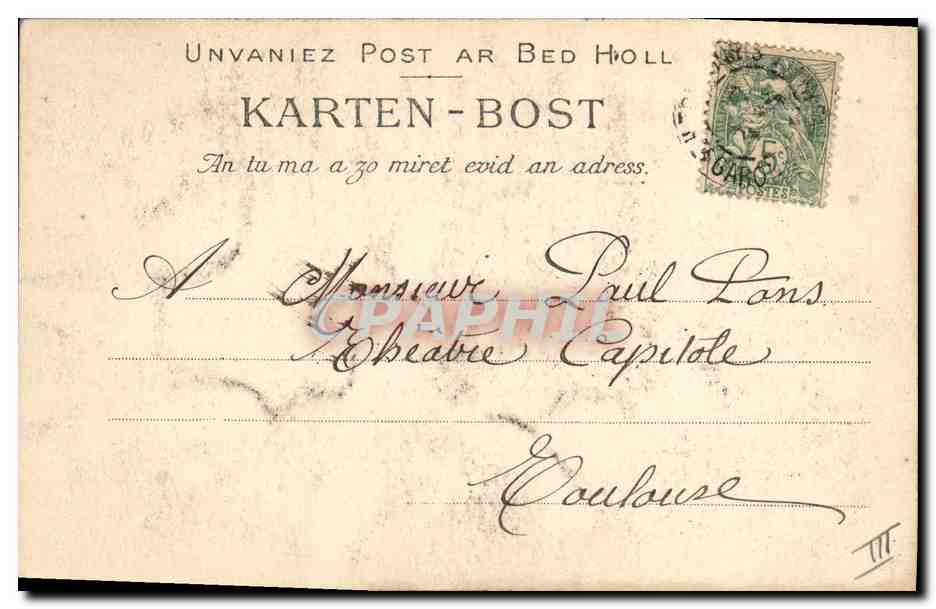 UNVANIEZ POST AR BED HOLL
KARTEN-BOST
An tu ma a zo miret evid an adress.
A Monsieur Paul Pons
Théâtre Capitole
Toulouse
CPAPHIL
5c
POSTES
GARO
III